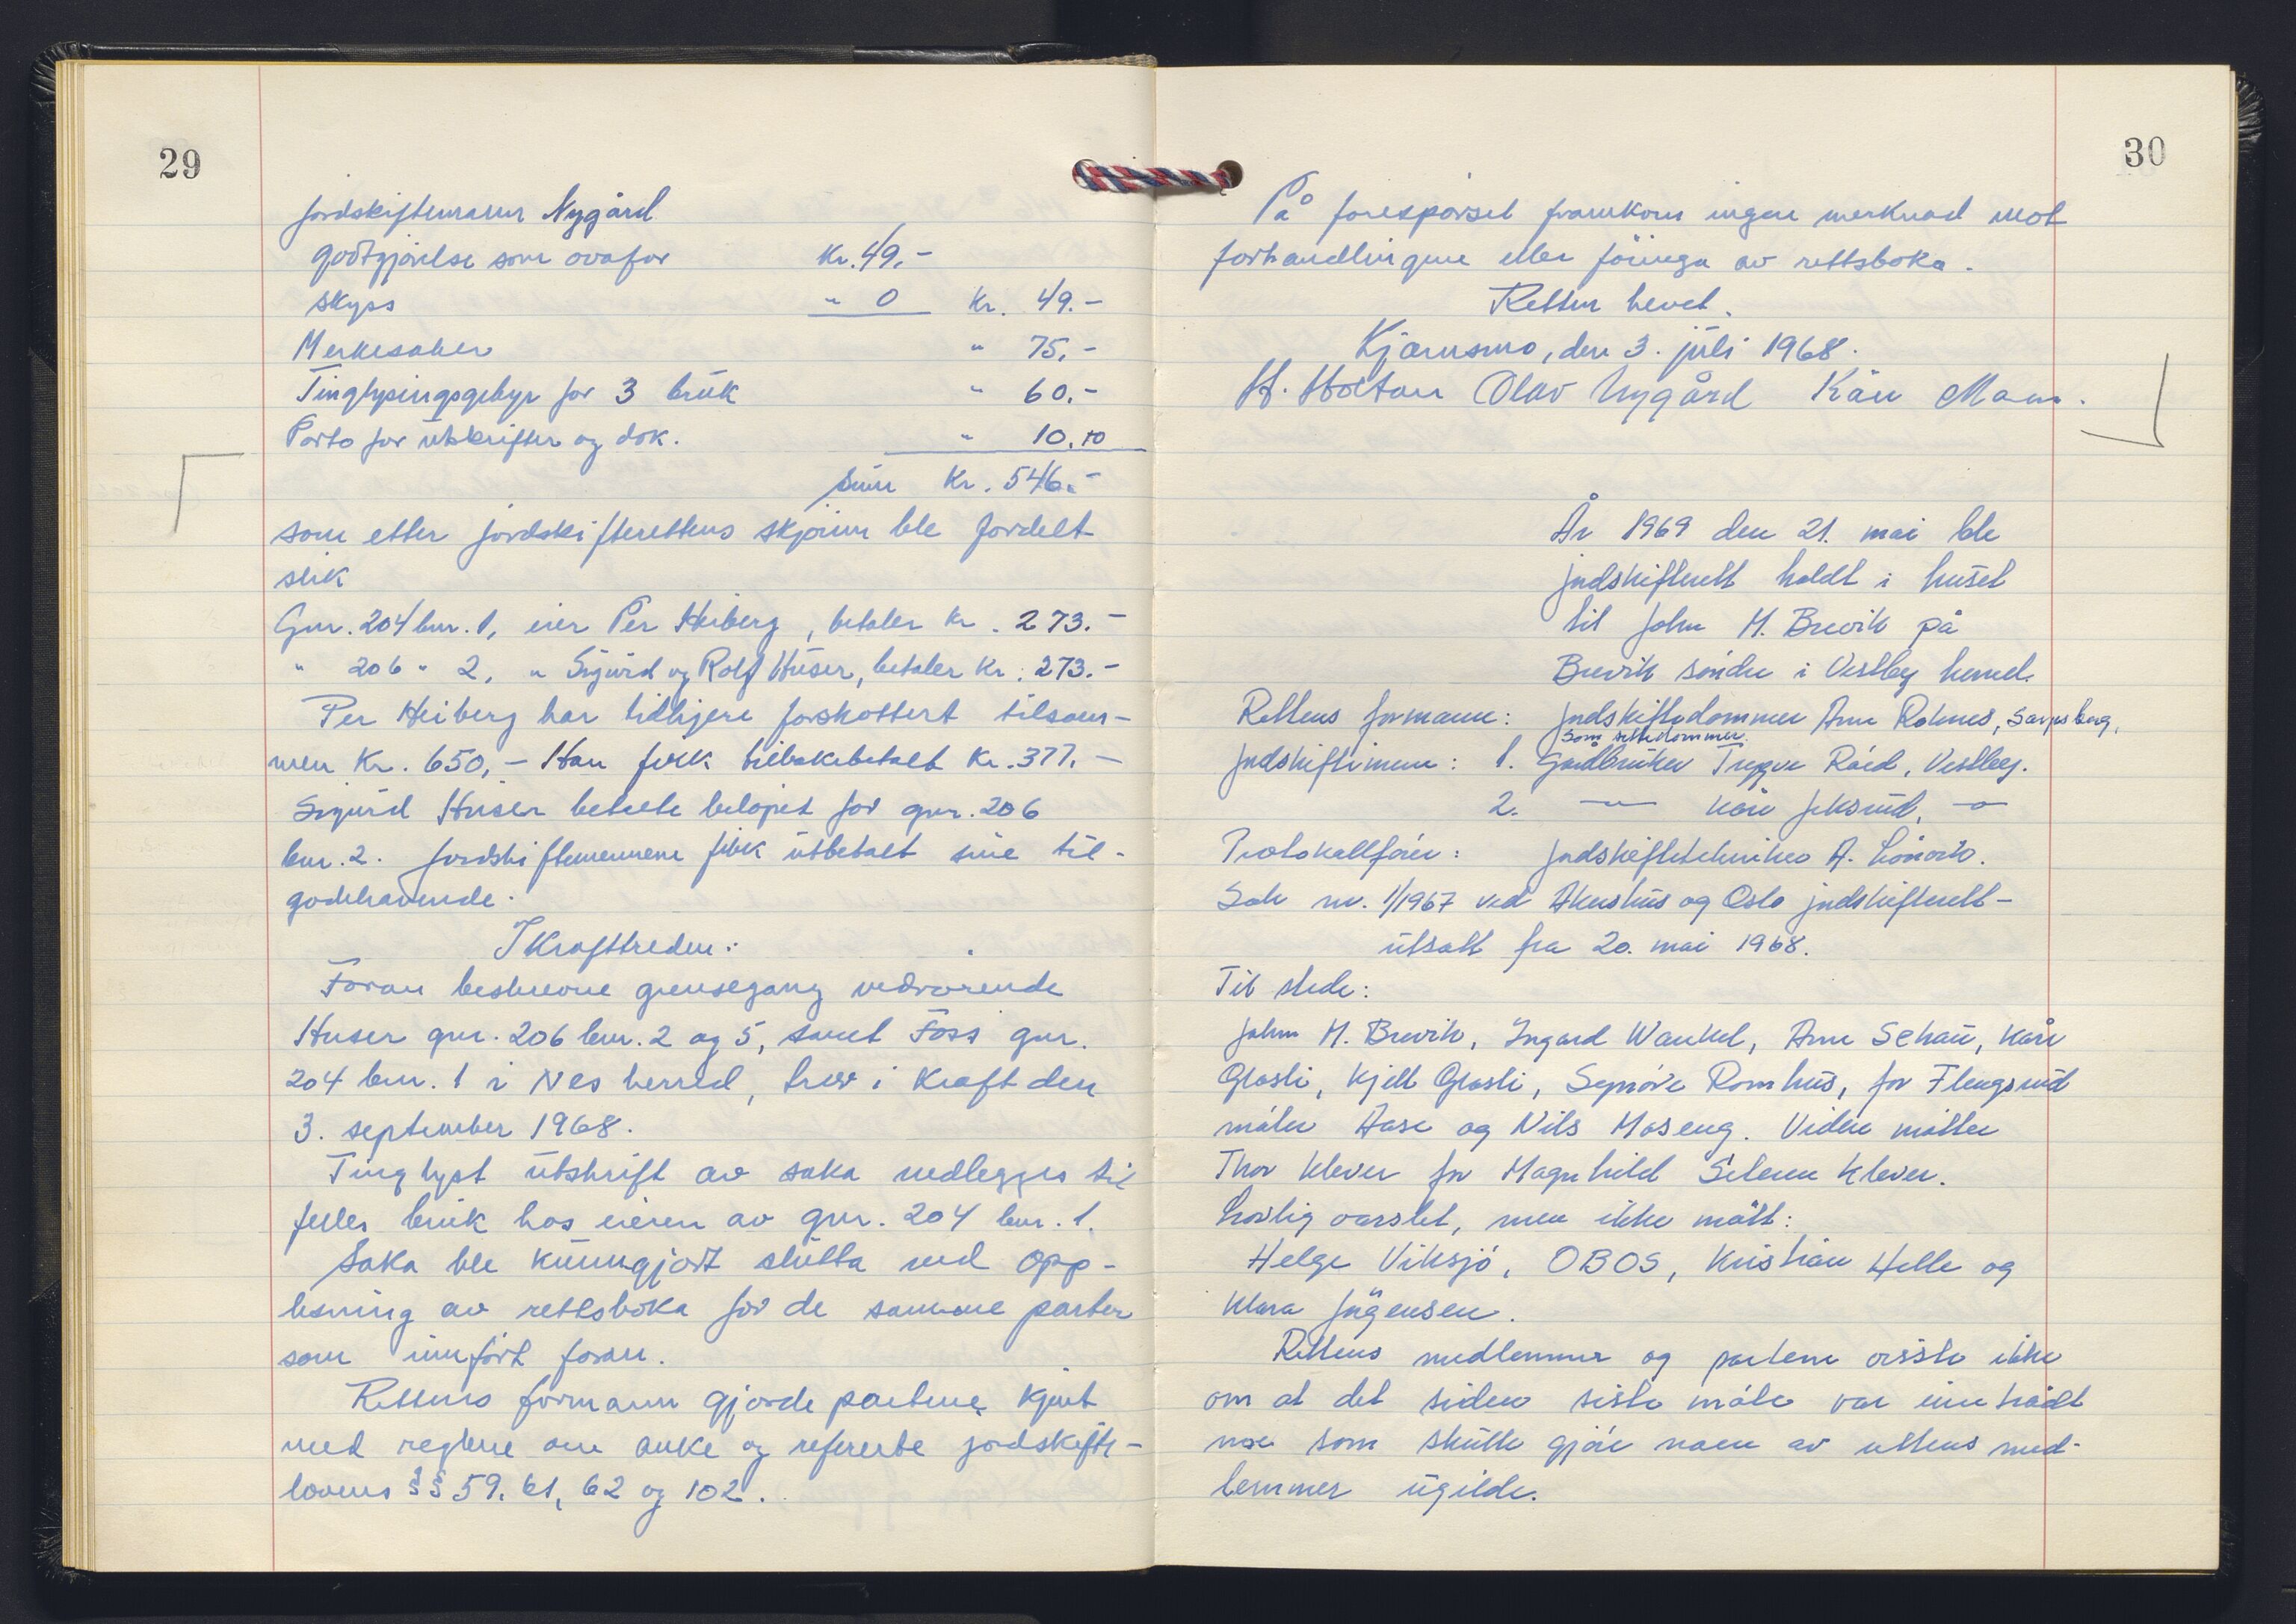 29
jordskiftemann Nygård
godtgjørelse som ovafor Kr. 49.-
skyss " 0 Kr. 49.-
Merkesaker " 75,-
Tinglysingsgebyr for 3 bruk " 60.-
Porto for utskrifter og dok. " 10.10
Sum Kr. 546.-
som etter jordskifterettens skjønn ble fordelt
slik
Gnr. 204 bnr. 1, eier Per Heiberg, betaler kr. 273.-
" 206 " 2, " Sigurd og Rolf Huser, betaler kr. 273.-
Per Heiberg har tidligere forskottert tilsam-
men Kr. 650,- Han fikk tilbakebetalt Kr. 377.-
Sigurd Huser betalte beløpet for gnr. 206
bnr. 2. Jordskiftemennene fikk utbetalt sine til-
godehavende.
Ikrafttreden:
Foran beskrevne grensegang vedrørende
Huser gnr. 206 bnr. 2 og 5, samt Foss gnr.
204 bnr. 1 i Nes herred, trer i kraft den
3. september 1968.
Tinglyst utskrift av saka nedlegges til
felles bruk hos eieren av gnr. 204 bnr. 1.
Saka ble kunngjort slutta ved opp-
lesning av rettsboka for de samme parter
som innført foran.
Rettens formann gjorde partene kjent
med reglene om anke og refererte jordskifte-
lovens §§ 59, 61, 62 og 102.
30
På forespørsel framkom ingen merknad mot
forhandlingene eller føringa av rettsboka.
Retten hevet.
Kjærnsmo, den 3. juli 1968.
H. Holtan Olav Nygård Kåre Mam.
År 1969 den 21. mai ble
jordskifterett holdt i huset
til John M. Brevik på
Brevik søndre i Vestby herred.
Rettens formann: Jordskiftedommer Arne Rolnes, Sarpsborg,
som settedommer.
Jordskiftemenn: 1. Gårdbruker Trygve Råed, Vestby.
2. —"— Kåre Jeksrud, —"—
Protokollfører: Jordskiftetekniker A. Lönvik.
Sak nr. 1/1967 ved Akershus og Oslo jordskifterett-
utsatt fra 20. mai 1968.
Til stede:
John M. Brevik, Ingard Wankel, Arne Schau, Kåre
Glosli, Kjell Glosli, Synøve Romhus, for Flengsrud
møter Aase og Nils Moseng. Videre møtter
Thor Klever for Magnhild Selena Klever.
Lovlig varslet, men ikke møtt:
Helge Viksjø, OBOS, Kristian Helle og
Klara Jørgensen.
Rettens medlemmer og partene visste ikke
om at det siden siste møte var inntrådt
noe som skulle gjøre noen av rettens med-
lemmer ugilde.